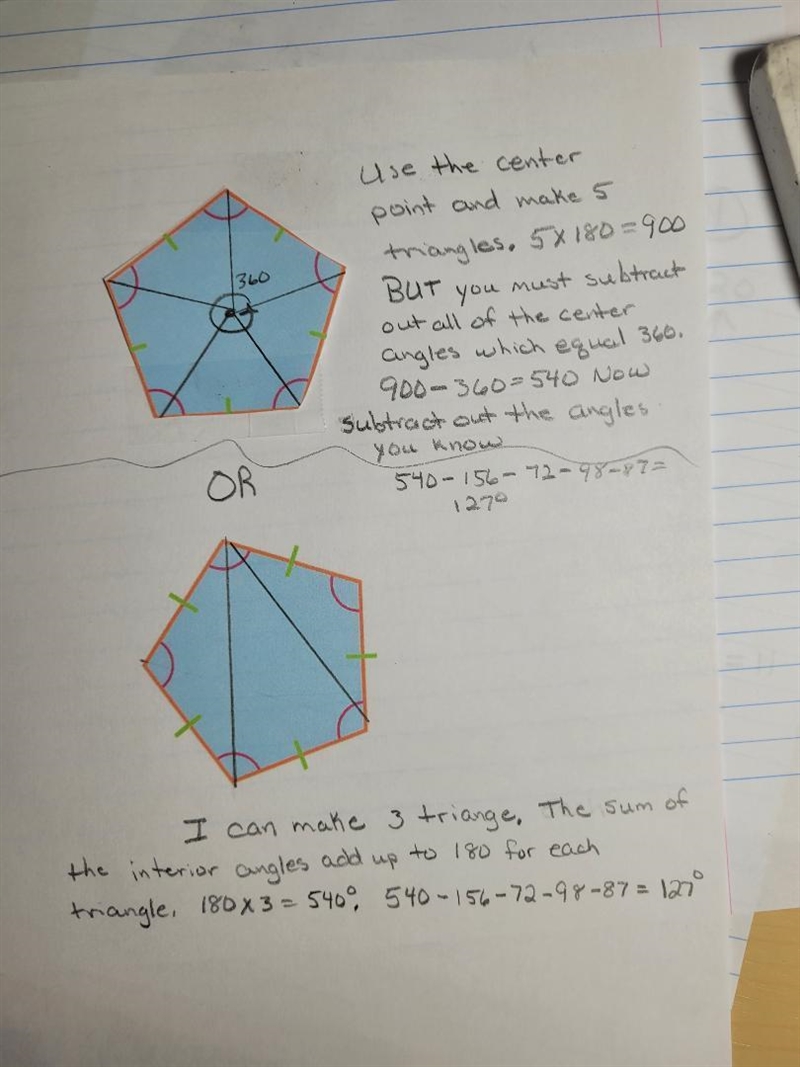 Use the center
point and make 5
triangles. 5 x 180 = 900
360
BUT you must subtract
out all of the center
angles which equal 360.
900 - 360 = 540 Now
subtract out the angles
you know
540 - 156 - 72 - 98 - 87 =
127°
OR
I can make 3 triange. The sum of
the interior angles add up to 180 for each
triangle. 180 x 3 = 540°. 540 - 156 - 72 - 98 - 87 = 127°